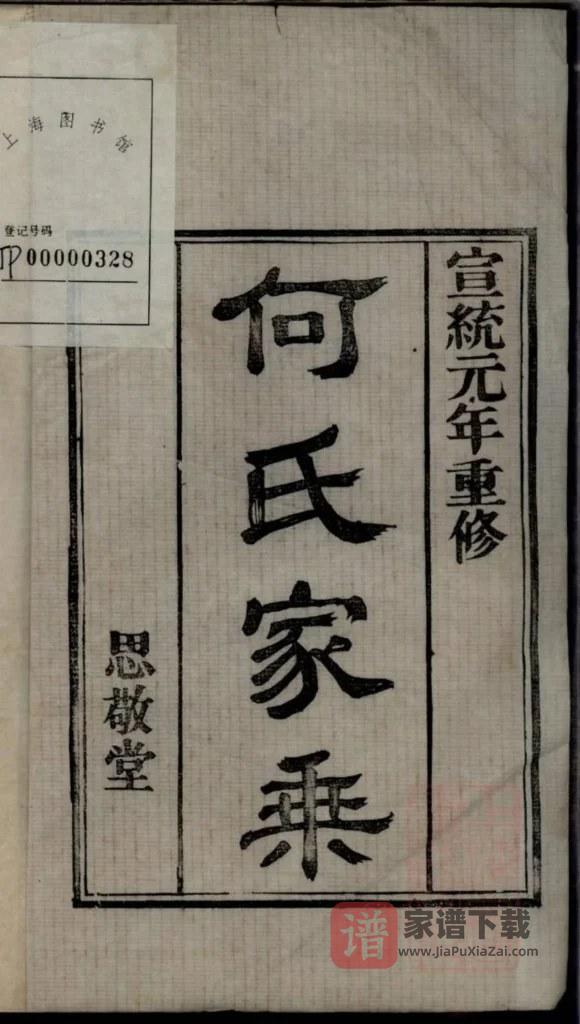 宣統元年重修
何氏家乘
思敬堂
上海图书馆
登记号码
TP00000328
谱
家谱下载
www.JiaPuXiaZai.com